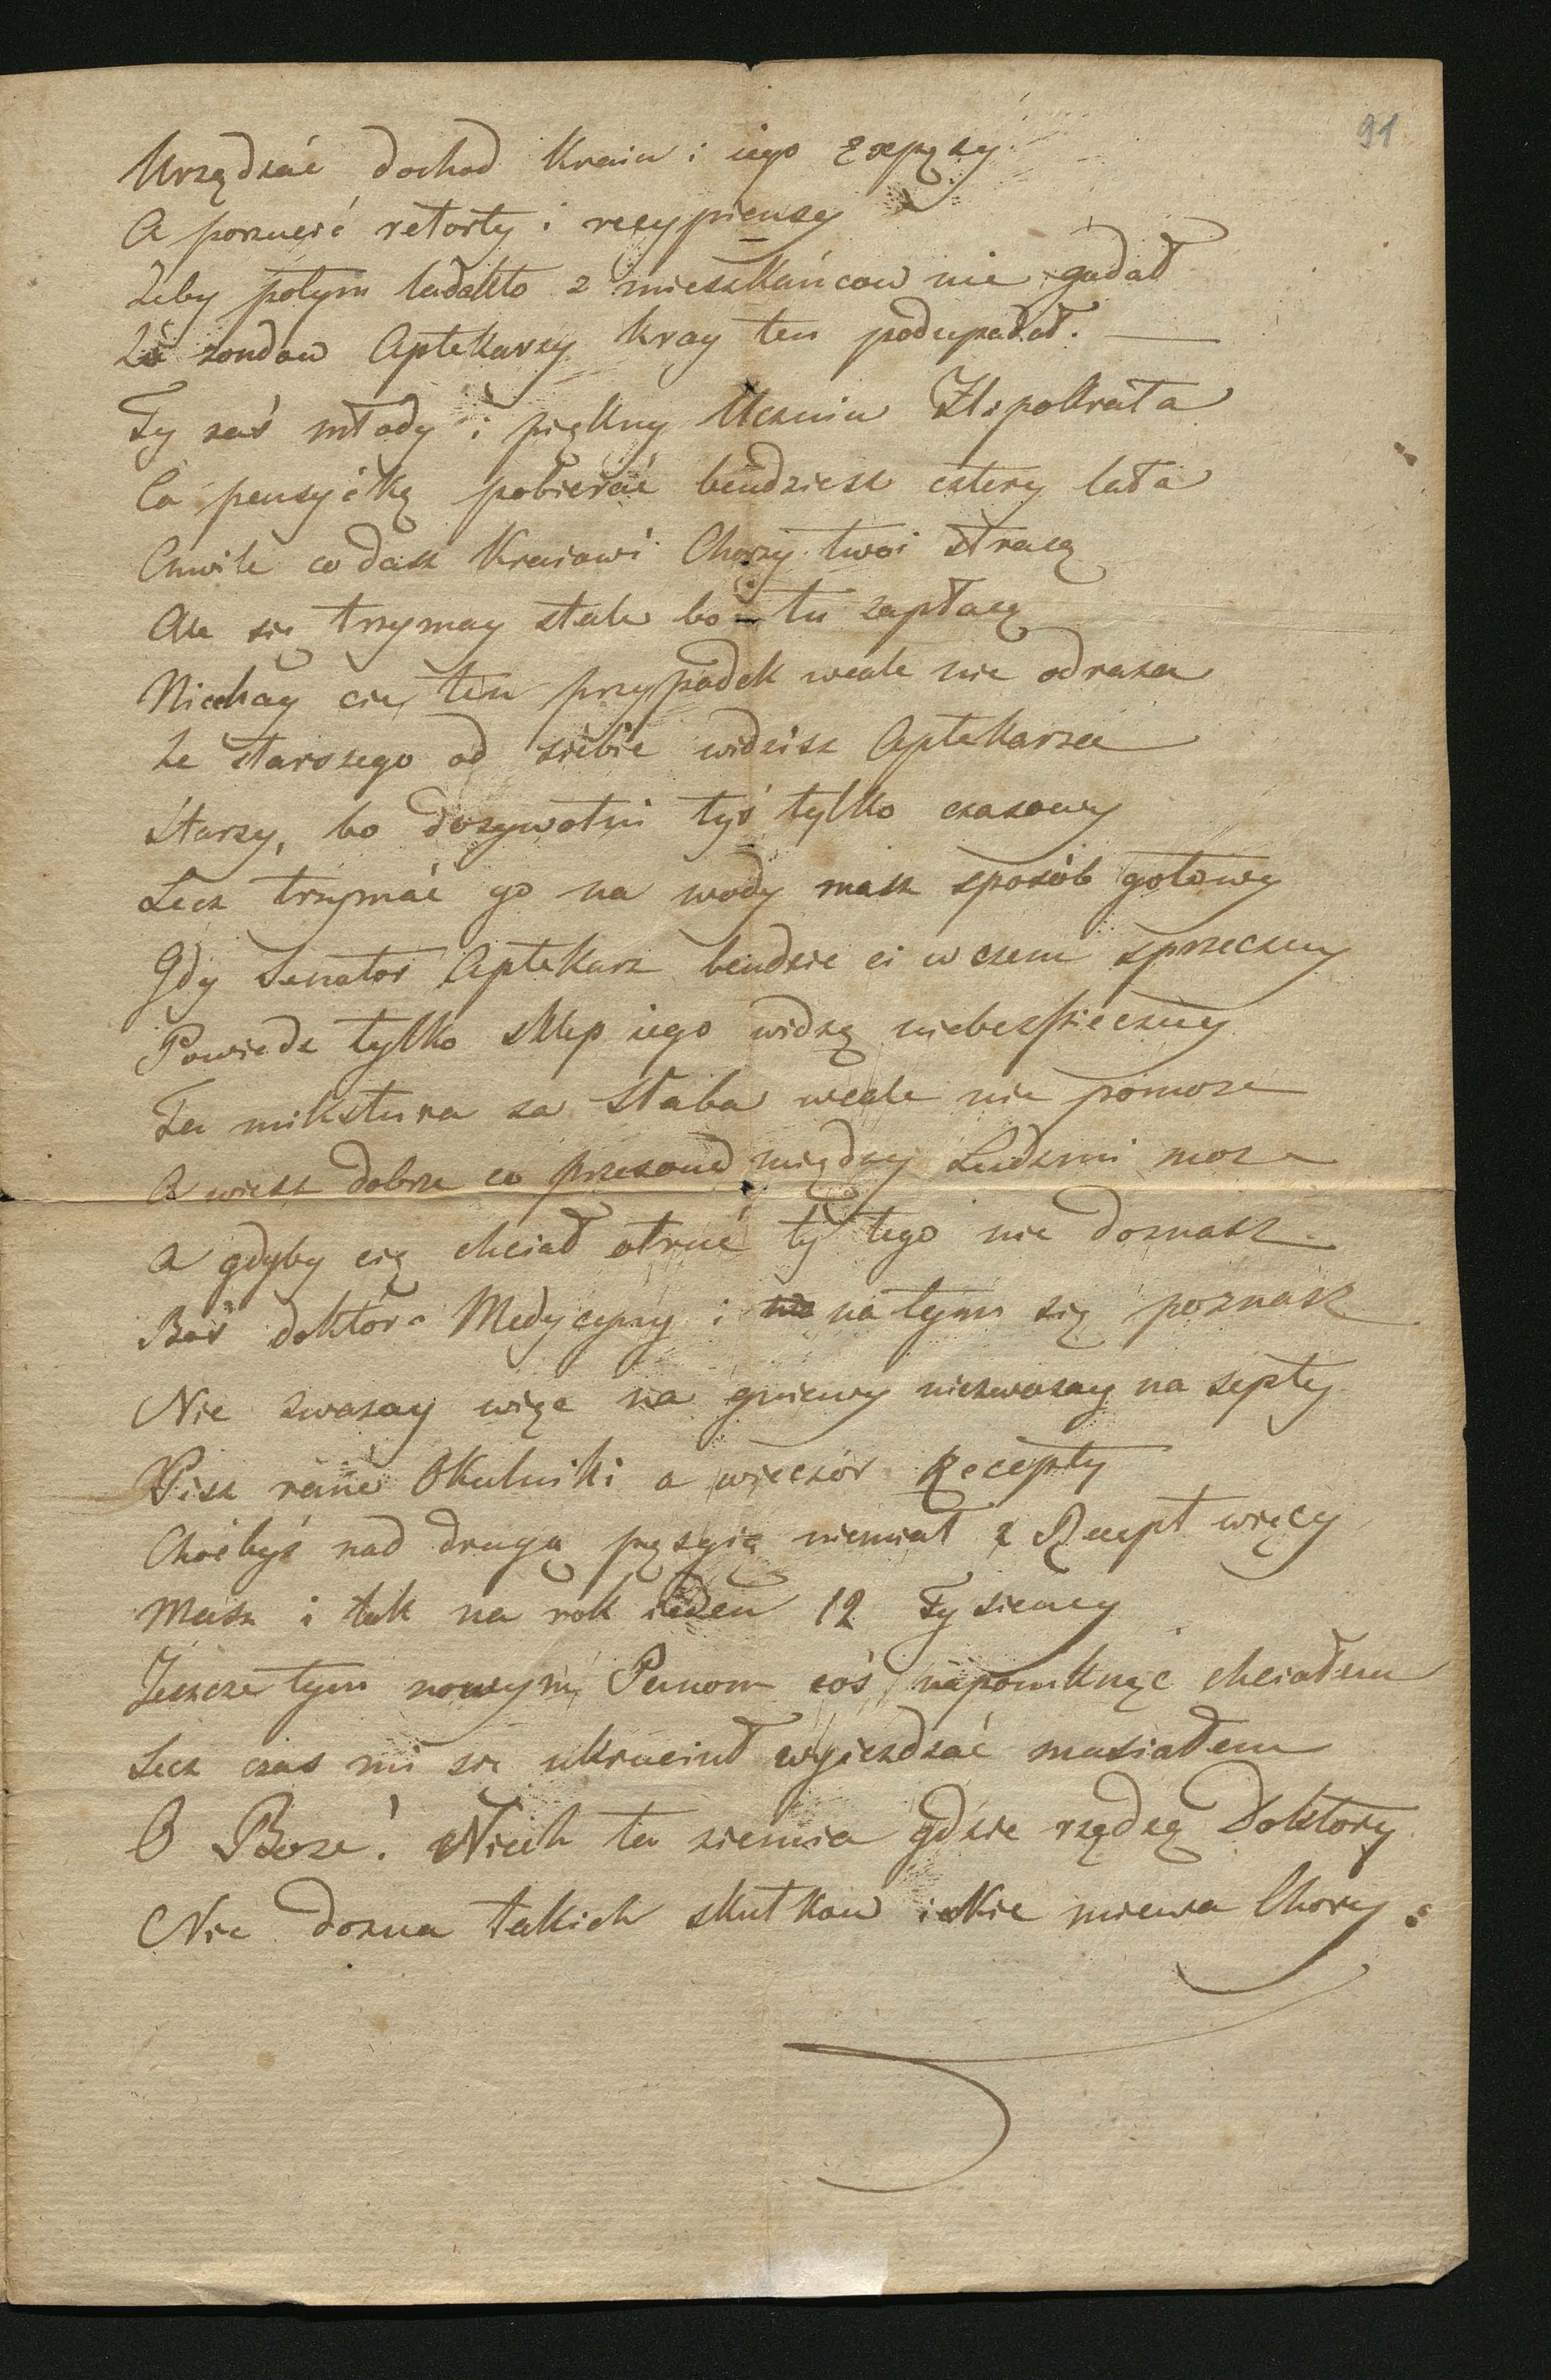 91
Urządzać dochod Kraiu i iego Expęsy
A porzucić retorty i recypiensy
Zeby potym ladakto z mieszkańcow nie gadał
Ze rondow Aptekarzy kray ten podupadał. —
Ty zaś młody i piękny Uczniu Hipokrata
Co pensyikę pobierać bendziesz cztery lata
Chwile co dasz Kraiowi Chorzy twoi stracą
Ale się trzymay stale bo tu zapłacą
Niechay cię ten przypadek wcale nie odraza
Ze starszego od siebie widzisz Aptekarza
Starszy, bo dozywotni tyś tylko czasowy
Lecz trzymać go na wody masz sposób gotowy
Gdy Senator Aptekarz bendzie ci w czem sprzeczny
Powiedz tylko sklep iego widzę niebezpieczny
Ta mikstura za słaba wcale nie pomoze
A wiesz dobrze co przesond między Ludzmi moze
A gdyby cię chciał otruć ty tego nie doznasz
Boś doktór Medycyny i na tym się poznasz
Nie zwazay więc na gniewy niezwazay na septy
Pisz rano Okulniki a wieczór Recepty
Choćbyś nad drugą pęsyią niemiał z Recept więcy
Masz i tak na rok ieden 12 Tysiency
Jeszcze tym nowym Panom coś napomknąc chciałem
Lecz czas mi się ukruciuł wyjezdzać musiałem
O Boze! Niech ta ziemia gdzie rządzą Doktory
Nie dozna takich skutkow iakie miewa Chory.